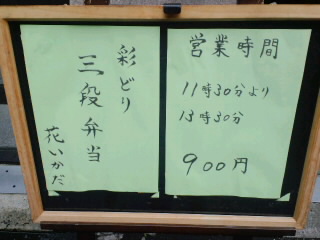 営業時間
11時30分より
13時30分
900円
彩どり
三段弁当
花いかだ